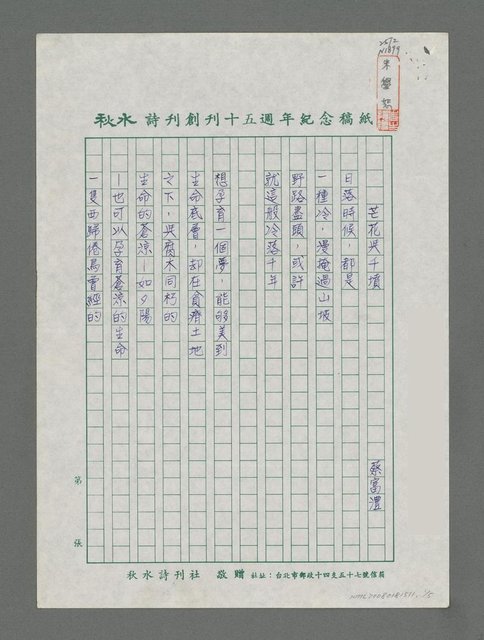 秋水詩刊創刊十五週年紀念稿紙
朱學恕
芒花與千墳
蔡富澧
日落時候,都是
一種冷,漫掩過山坡
野路盡頭,或許
就這般冷落千年
想孕育一個夢,能夠美到
生命底層 却在貧瘠土地
之下,與腐木同朽的
生命的蒼涼—如夕陽
—也可以孕育蒼涼的生命
一隻西歸倦鳥曾經的
第
張
秋水詩刊社 敬贈 社址:台北市郵政十四支五十七號信箱